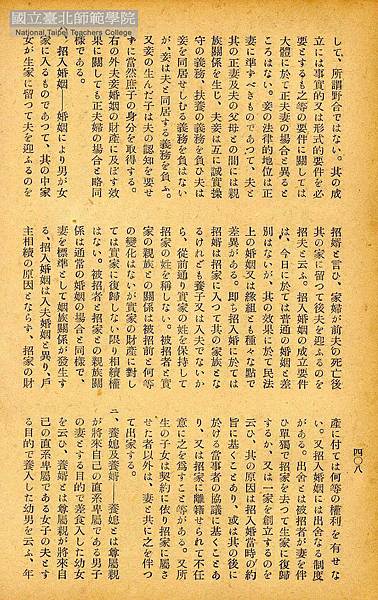 國立臺北師範學院
National Taipei Teachers College
四〇八
して、所謂野合ではない。其の成
立には事實的又は形式的要件を必
要とするも之等の要件に關しては
大體に於て正夫妻の場合と異ると
ころはない。妾の法律的地位は正
妻に準ずべきものであつて、夫と
其の正妻夫の父母との間には親
族關係を生じ、夫妾は互に誠實操
守の義務、扶養の義務を負ひ夫は
妾を同居せしむる義務を負はない
が、妾は夫と同居する義務を負ふ。
又妾の生んだ子は夫の認知を要せ
ずに當然庶子の身分を取得する。
右の外夫妾婚姻の財産に及ぼす效
果に關しても正夫婦の場合と略同
樣である。
一、招入婚姻――婚姻により男が女
家に入るものであつて、其の中家
女が生家に留つて夫を迎ふるのを
招婿と言ひ、家婦が前夫の死亡後
其の家に留つて後夫を迎ふるのを
招夫と云ふ。招入婚姻の成立要件
は、今日に於ては普通の婚姻と差
別はないが、其の效果に於て民法
上の婚姻又は緣組とも種々な點で
差異がある。即ち招入婚に於ては
招婿は招家に入つて其の家族とな
るけれども養子又は入夫でないか
ら、從前通り實家の姓を保持して
招家の姓を稱しない。被招者と實
家の親族との關係は被招前と何等
の變化はないが實家の財產に對し
ては實家に復歸しない限り相續權
はない。被招者と招家との親族關
係は通常の婚姻の場合と同樣で、
妻を標準として姻族關係が發生す
る、招入婚姻は入夫婚姻と異り、戶
主相續の原因とならず、招家の財
產に付ては何等の權利を有せな
い。又招入婚姻には出舍なる制度
がある。出舍とは被招者が妻を伴
ひ單獨で招家を去つて生家に復歸
するか、又は一家を創立するのを
云ひ、其の原因は招入婚當時の約
旨に基くことあり、或は其の後に
於ける當事者の協議に基くことあ
り、又は招家に離籍せられて不任
意に之を爲すこと等がある。又所
生の子女は契約に依り招家に屬さ
せた者以外は、妻と共に之を伴つ
て出家する。
二、養媳及養婿――養媳とは尊屬親
が將來自己の直系卑屬である男子
の妻とする目的で差食入した幼女
を云ひ、養婿とは尊屬親が將來自
己の直系卑屬である女子の夫とす
る目的で養入した幼男を云ふ、年